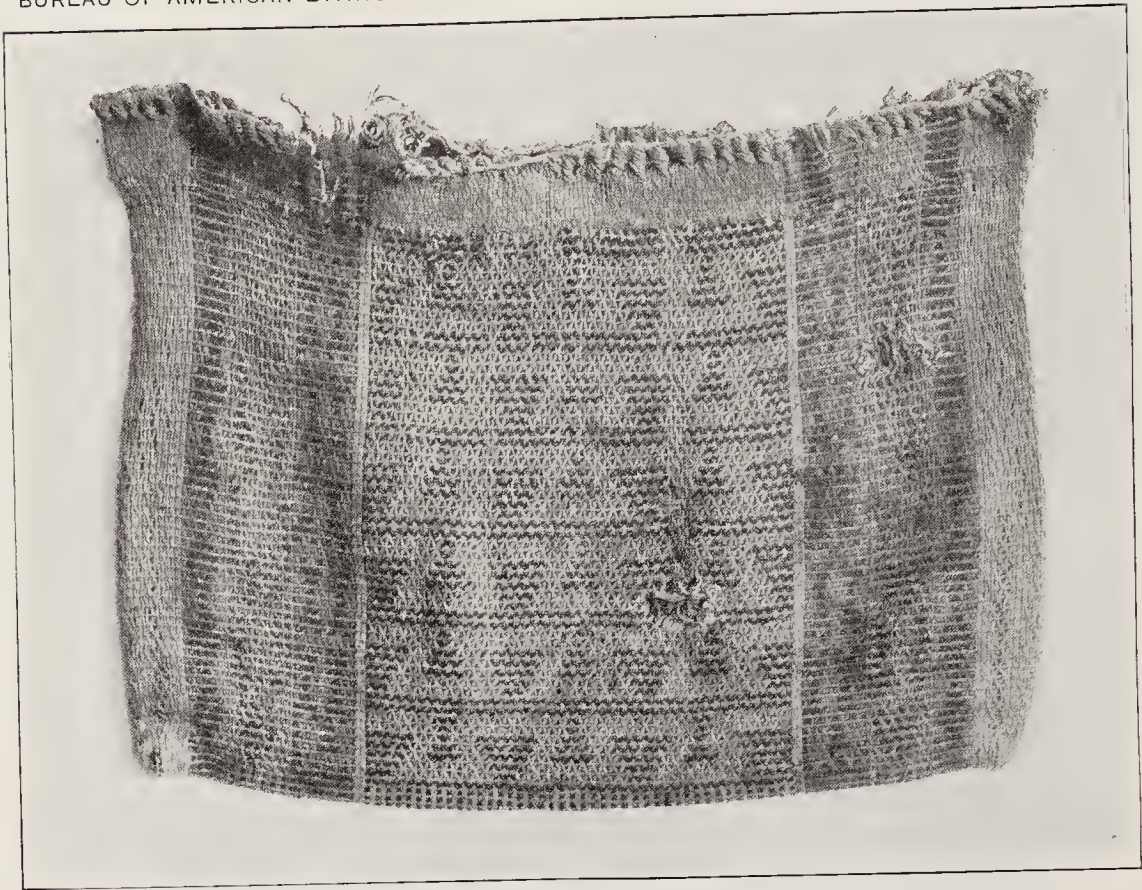 BUREAU OF AMERICAN